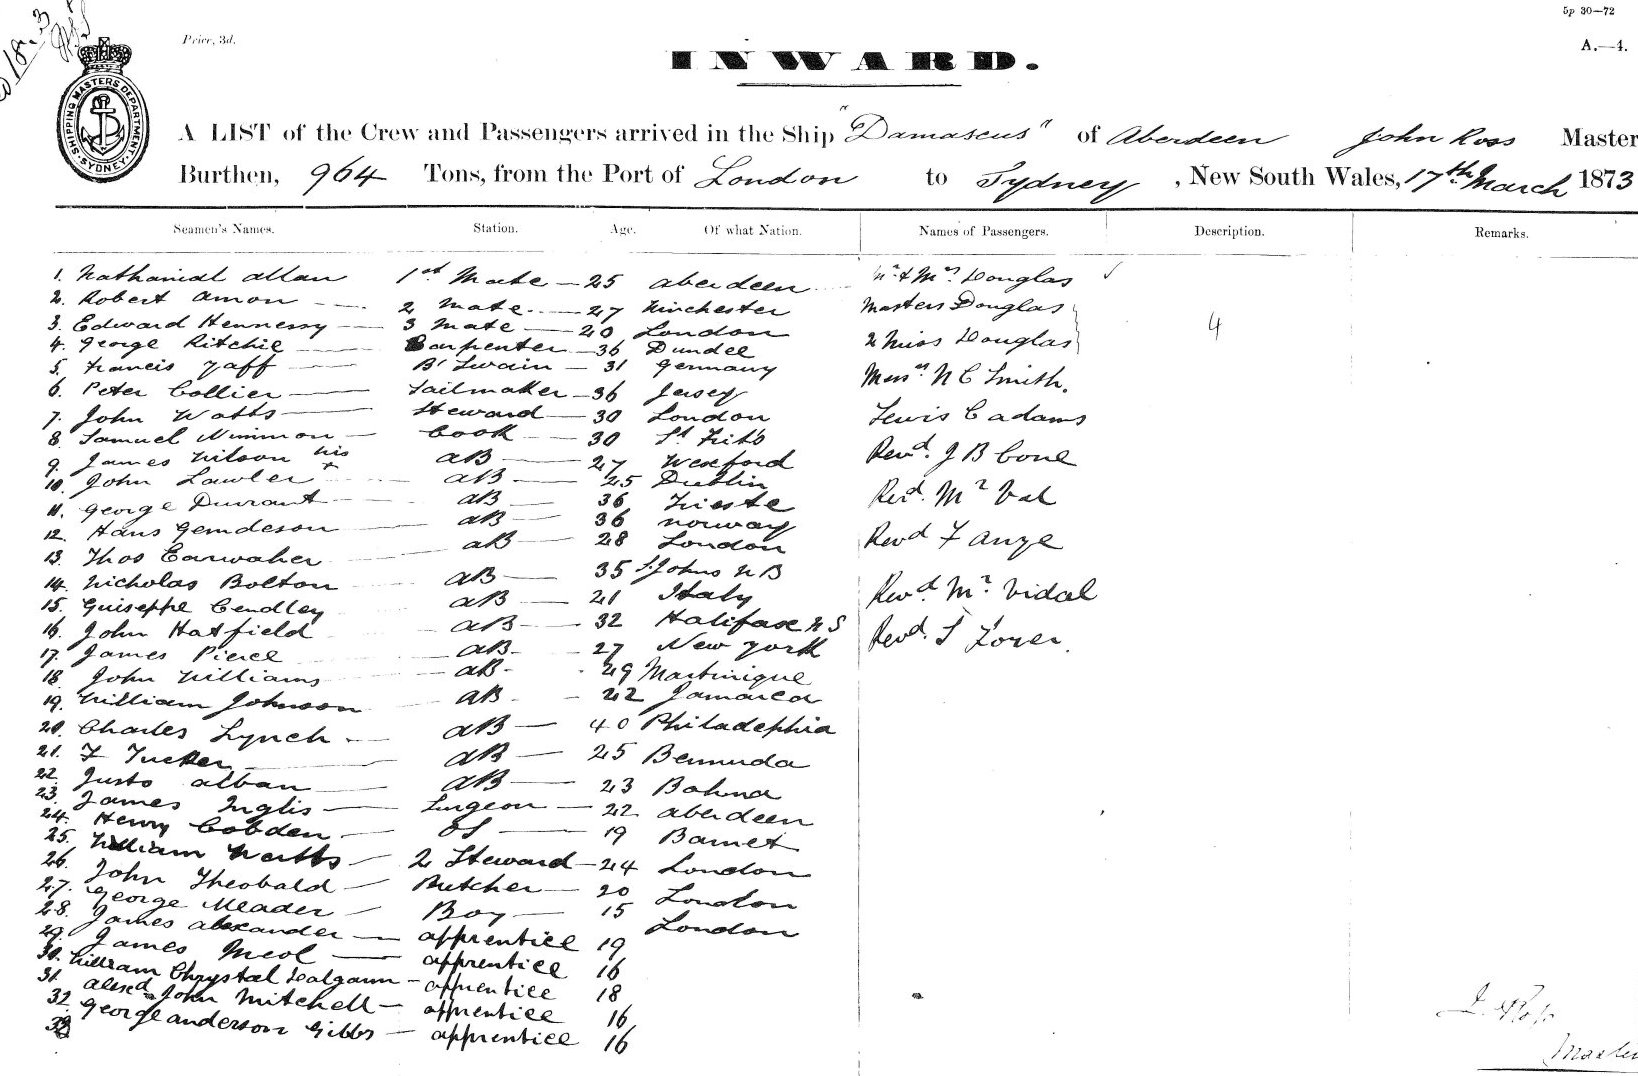 5p 30—72
Price, 3d.
A.—4.
INWARD.
SHIPPING MASTERS DEPARTMENT · SYDNEY ·
A LIST of the Crew and Passengers arrived in the Ship "Damascus" of Aberdeen John Ross Master
Burthen, 964 Tons, from the Port of London to Sydney, New South Wales, 17th March 1873
Seamen's Names. Station. Age. Of what Nation. Names of Passengers. Description. Remarks.
1. Nathanial Allan 1st Mate — 25 Aberdeen Mr & Mrs Douglas
2. Robert Amon 2 Mate — 27 Winchester Masters Douglas
3. Edward Hennessy — 3 Mate — 20 London 4
4. George Ritchie — Carpenter — 36 Dundee 2 Miss Douglas
5. Francis Jaff — Bt Swain — 31 Germany
6. Peter Collier — Sailmaker — 36 Jersey N C Smith.
7. John Watts — Steward — 30 London Lewis C Adams
8. Samuel Nimmon — Cook — 30 St
9. James Wilson his x AB — 27 Wexford Revd. J B
10. John Lawler AB — 25 Dublin
11. George Durrant AB — 36 Trieste Revd. Mr
12. Hans AB — 36 Norway
13. Thos Earwaker AB — 28 London Revd F
14. Nicholas Bolton AB — 35 St Johns N B
15. Guiseppe Cendley AB — 21 Italy Revd. Mr. Vidal
16. John Hatfield AB — 32 Halifax N S
17. James Pierce AB — 27 New York Revd.
18. John Williams AB 29 Martinique
19. William Johnson AB 22 Jamaica
20. Charles Lynch — AB — 40 Philadephia
21. F Tucker — AB — 25 Bermuda
22. Justo Alban — AB — 23
23. James Inglis — Surgeon — 22 Aberdeen
24. Henry Cobden — OS — 19 Barnet
25. William Watts — 2 Steward — 24 London
26. John Theobald — Butcher — 20 London
27. George Meader — Boy — 15 London
28. James Alexander — apprentice 19
29. James — apprentice 16
30. William Chrystal — apprentice 18
31. Alexd John Mitchell — apprentice 16
32. George Anderson Gibbs — apprentice 16
J. Ross
Master